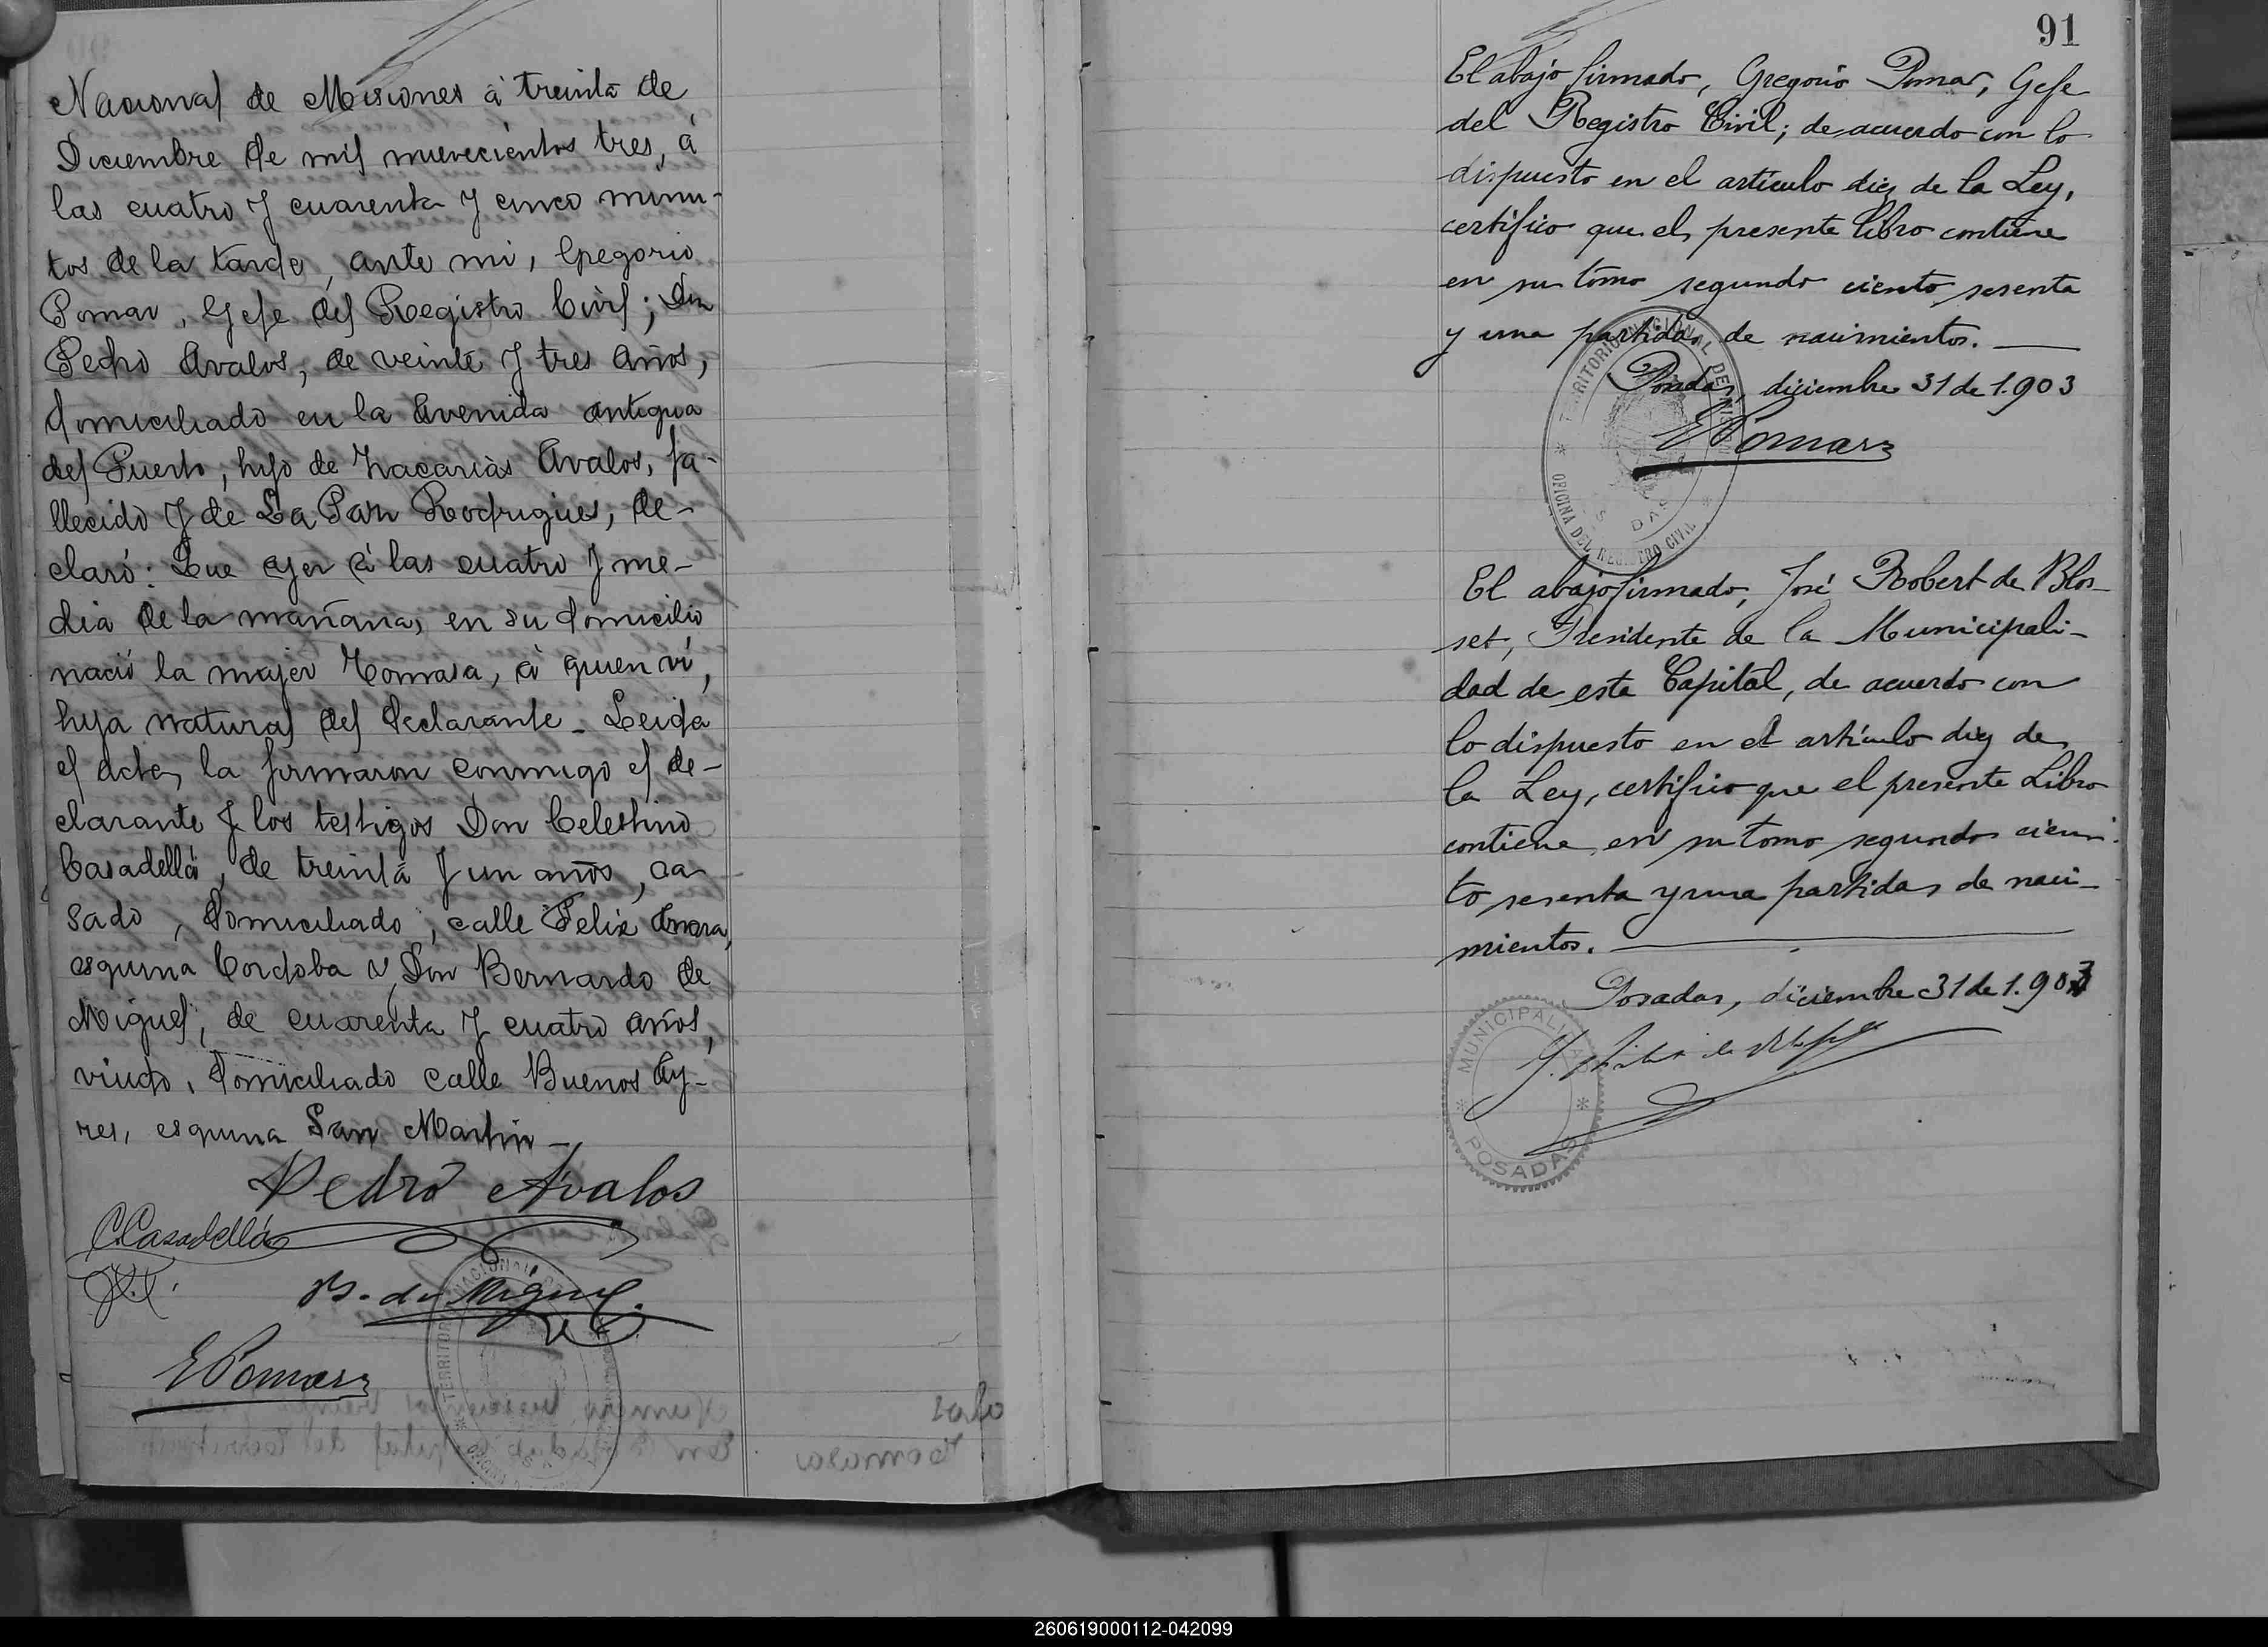 Nacional de Misiones á treinta de
Diciembre de mil nuevecientos tres, á
las cuatro y cuarenta y cinco minu-
tos de la tarde, ante mi, Gregorio
Pomar, Gefe del Registro Civil; Don
Pedro Avalos, de veinte y tres años,
domiciliado en la Avenida antigua
del Puerto, hijo de Zacarias Avalos, fa-
llecido y de La Paz Rodrigues, de-
claró: Que ayer á las cuatro y me-
dia de la mañana, en su domicilio
nació la mujer Tomasa, á quien ví,
hija natural del declarante _ Leida
el acta, la firmaron conmigo el de-
clarante y los testigos Don Celestino
Casadellá, de treinta y un años, ca-
sado, domiciliado, calle Felix Azara,
esquina Cordoba y Don Bernardo de
Miguel, de cuarenta y cuatro años,
viudo, domiciliado calle Buenos Ay-
res, esquina San Martin _
Pedro Avalos
C. Casadellá
B. de Miguel
GPomar
91
El abajo firmado, Gregorio Pomar, Gefe
del Registro Civil; de acuerdo con lo
dispuesto en el artículo diez de la Ley,
certifico que el presente libro contiene
en su tómo segundo ciento sesenta
y una partidas de nacimientos.
Posadas, diciembre 31 de 1.903
GPomar
TERRITORIO NACIONAL DE MISIONES
OFICINA DEL REGISTRO CIVIL
POSADAS
El abajo firmado, José Robert de Blos-
set, Presidente de la Municipali-
dad de esta Capital, de acuerdo con
lo dispuesto en el artículo diez de
la Ley, certifico que el presente Libro
contiene en su tomo segundo cien-
to sesenta y una partidas de naci-
mientos.
Posadas, diciembre 31 de 1.903
MUNICIPALIDAD
POSADAS
260619000112-042099